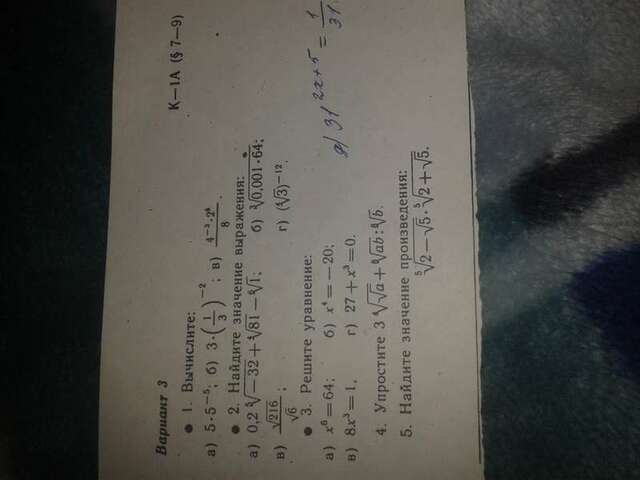 Вариант 3
К—1А (§ 7—9)
1. Вычислите:
а) 5·5⁻⁵; б) 3·(1/3)⁻²; в) 4⁻³·2⁸/8.
2. Найдите значение выражения:
а) 0,2 ⁵√−32+⁴√81−⁶√1; б) ³√0,001·64;
в) √216/√6; г) (⁴√3)⁻¹².
3. Решите уравнение:
а) x⁶=64; б) x⁴=−20;
в) 8x³=1, г) 27+x³=0.
д) 31²ˣ⁺⁵ = 1/31
4. Упростите 3 ⁴√√a+⁸√ab:⁸√b.
5. Найдите значение произведения:
⁵√2−√5·⁵√2+√5.